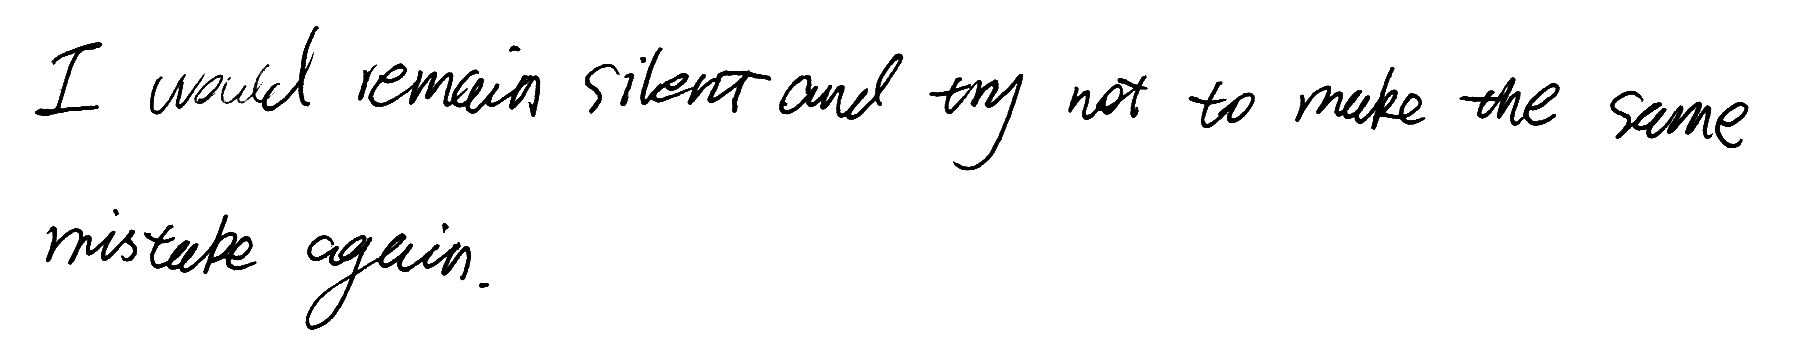 I would remain silent and try not to make the same
mistake again.